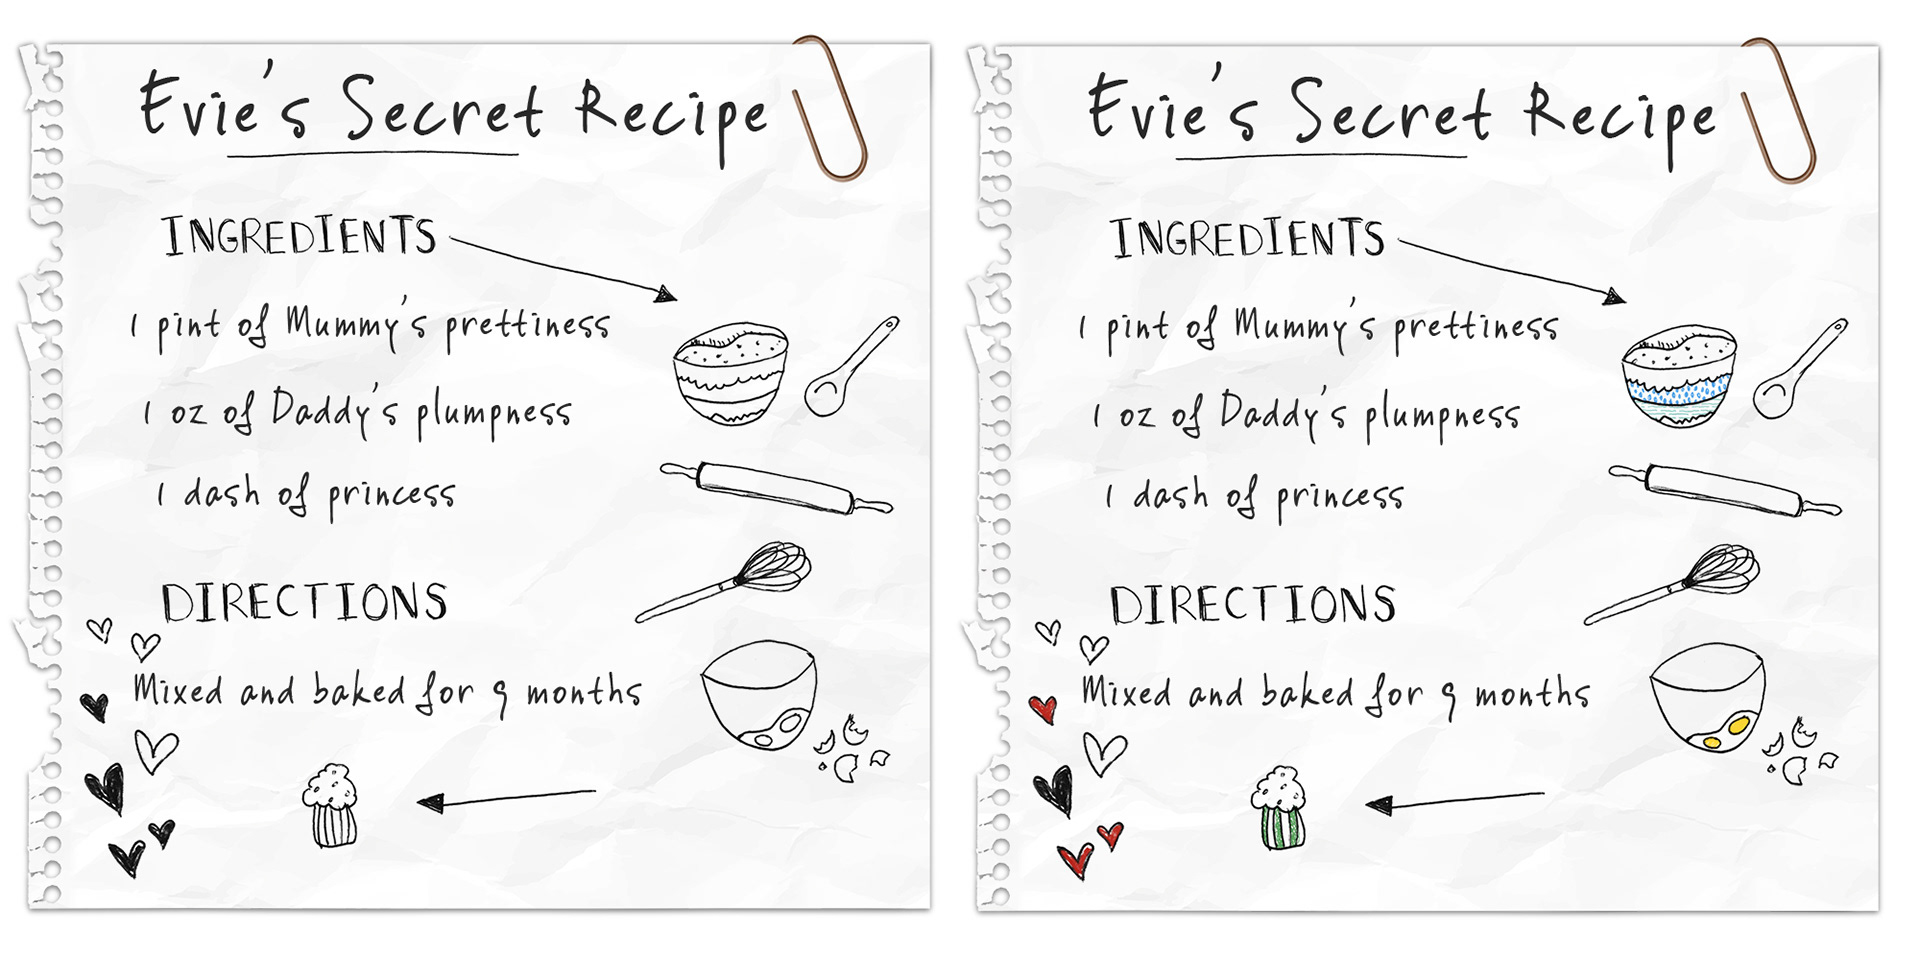 Evie's Secret Recipe
INGREDIENTS
1 pint of Mummy's prettiness
1 oz of Daddy's plumpness
1 dash of princess
DIRECTIONS
Mixed and baked for 9 months
Evie's Secret Recipe
INGREDIENTS
1 pint of Mummy's prettiness
1 oz of Daddy's plumpness
1 dash of princess
DIRECTIONS
Mixed and baked for 9 months